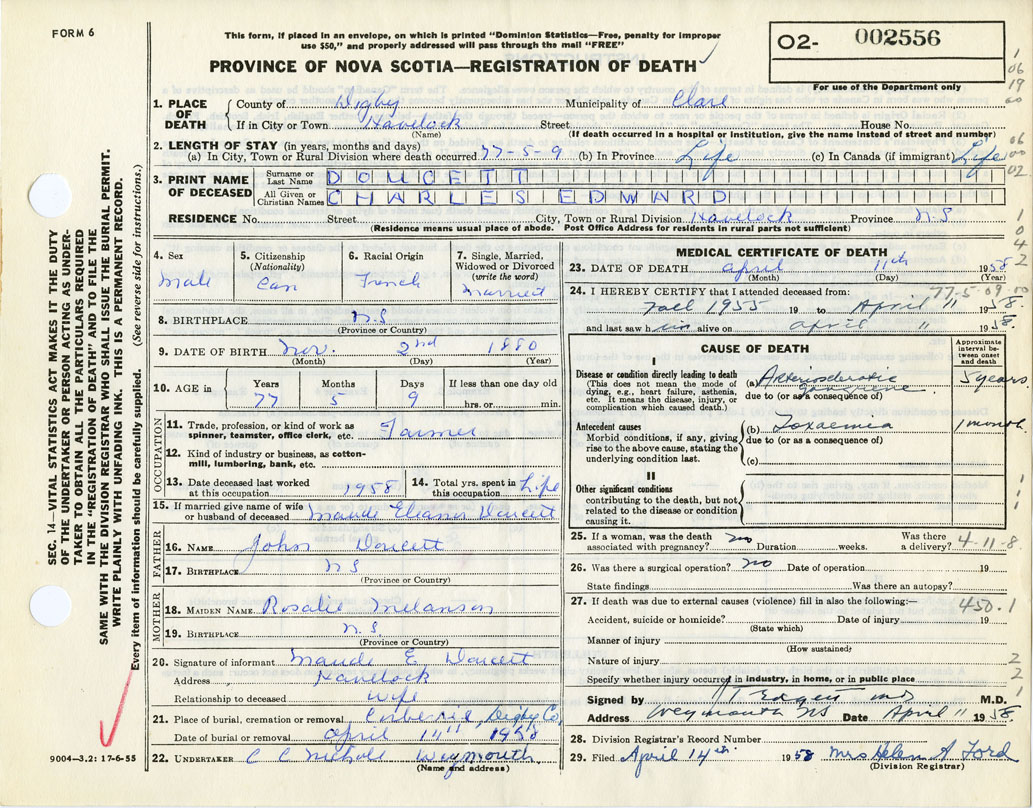 FORM 6
This form, if placed in an envelope, on which is printed "Dominion Statistics—Free, penalty for improper
use $50," and properly addressed will pass through the mail "FREE"
PROVINCE OF NOVA SCOTIA—REGISTRATION OF DEATH
O2- 002556
For use of the Department only
1 06 19 00
1. PLACE OF DEATH
County of Digby Municipality of Clare
If in City or Town Havelock Street House No.
(Name) (If death occurred in a hospital or institution, give the name instead of street and number)
2. LENGTH OF STAY (in years, months and days)
(a) In City, Town or Rural Division where death occurred 77-5-9 (b) In Province Life (c) In Canada (if immigrant) Life
06 00 02
3. PRINT NAME OF DECEASED
Surname or Last Name DOUCETT
All Given or Christian Names CHARLES EDWARD
RESIDENCE No. Street City, Town or Rural Division Havelock Province N.S
(Residence means usual place of abode. Post Office Address for residents in rural parts not sufficient)
1 0 4 2
4. Sex Male
5. Citizenship (Nationality) Can
6. Racial Origin French
7. Single, Married, Widowed or Divorced (write the word) Married
8. BIRTHPLACE N.S
(Province or Country)
9. DATE OF BIRTH Nov. 2nd 1880
(Month) (Day) (Year)
10. AGE in Years Months Days If less than one day old
77 5 9 hrs. or min.
OCCUPATION
11. Trade, profession, or kind of work as spinner, teamster, office clerk, etc. Farmer
12. Kind of industry or business, as cotton-mill, lumbering, bank, etc.
13. Date deceased last worked at this occupation 1958
14. Total yrs. spent in this occupation Life
15. If married give name of wife or husband of deceased Maude Eleanor Doucett
FATHER
16. NAME John Doucett
17. BIRTHPLACE N S
(Province or Country)
MOTHER
18. MAIDEN NAME Rosalie Melanson
19. BIRTHPLACE N.S.
(Province or Country)
20. Signature of informant Maude E. Doucett
Address Havelock
Relationship to deceased Wife
21. Place of burial, cremation or removal Digby Co,
Date of burial or removal April 14th 1958
22. UNDERTAKER C C Nichols Weymouth
(Name and address)
MEDICAL CERTIFICATE OF DEATH
23. DATE OF DEATH April 11th 1958
(Month) (Day) (Year)
77-5-09.00
24. I HEREBY CERTIFY that I attended deceased from:
Fall 1955 19 to April 11 1958
and last saw him alive on april 11 1958.
CAUSE OF DEATH
Approximate interval between onset and death
I
Disease or condition directly leading to death
(This does not mean the mode of dying, e.g., heart failure, asthenia, etc. It means the disease, injury, or complication which caused death.)
(a) Arteriosclerotic 5 years
due to (or as a consequence of)
Antecedent causes
Morbid conditions, if any, giving rise to the above cause, stating the underlying condition last.
(b) Toxaemia 1 month
due to (or as a consequence of)
(c)
II
Other significant conditions contributing to the death, but not related to the disease or condition causing it.
1 1 1
25. If a woman, was the death associated with pregnancy? no Duration weeks. Was there a delivery? 4-11-8
26. Was there a surgical operation? no Date of operation 19
State findings Was there an autopsy?
27. If death was due to external causes (violence) fill in also the following:—
450.1
Accident, suicide or homicide? Date of injury 19
(State which)
Manner of injury
(How sustained)
Nature of injury 2
Specify whether injury occurred in industry, in home, or in public place 2
Signed by Edgett md M.D.
Address Weymouth NS Date April 11 1958.
28. Division Registrar's Record Number
29. Filed April 14th 1958 Mrs Helen A Ford
(Division Registrar)
SEC. 14—VITAL STATISTICS ACT MAKES IT THE DUTY
OF THE UNDERTAKER OR PERSON ACTING AS UNDER-
TAKER TO OBTAIN ALL THE PARTICULARS REQUIRED
IN THE "REGISTRATION OF DEATH" AND TO FILE THE
SAME WITH THE DIVISION REGISTRAR WHO SHALL ISSUE THE BURIAL PERMIT.
WRITE PLAINLY WITH UNFADING INK. THIS IS A PERMANENT RECORD.
Every item of information should be carefully supplied. (See reverse side for instructions.)
9004—3.2: 17-6-55